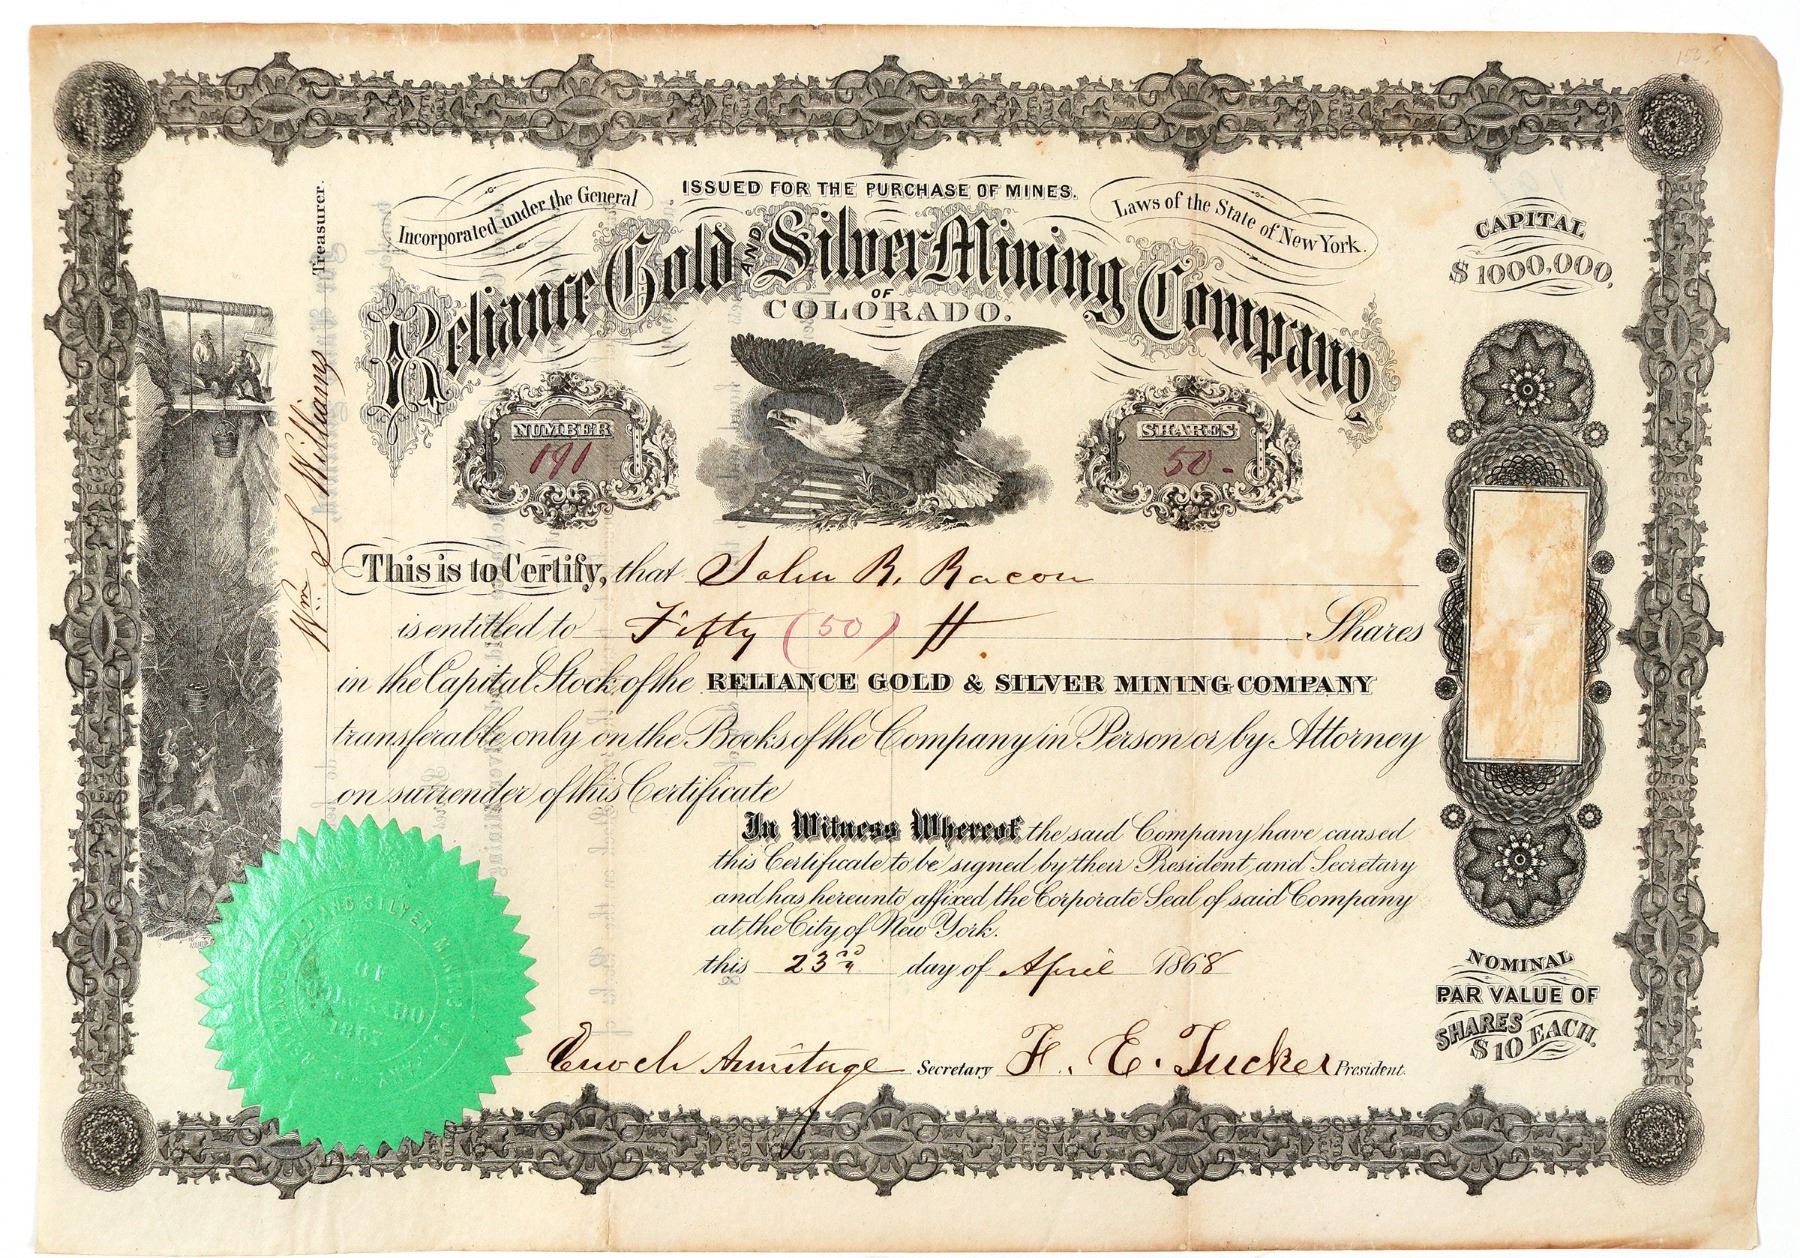 ISSUED FOR THE PURCHASE OF MINES.
Incorporated under the General
Laws of the State of New York.
Reliance Gold AND Silver Mining Company,
OF
COLORADO.
CAPITAL
$1000,000,
NUMBER
191
SHARES
50-
Treasurer.
Wm. S Williams
This is to Certify, that John R. Racon
is entitled to Fifty (50) Shares
in the Capital Stock of the RELIANCE GOLD & SILVER MINING COMPANY
transferable only on the Books of the Company in Person or by Attorney
on surrender of this Certificate
In Witness Whereof the said Company have caused
this Certificate to be signed by their President and Secretary
and has hereunto affixed the Corporate Seal of said Company
at the City of New York.
this 23rd day of April 1868
Enoch Armitage Secretary F. E. Tucker President.
NOMINAL
PAR VALUE OF
SHARES EACH.
$10
AND SILVER MINING
OF
COLORADO